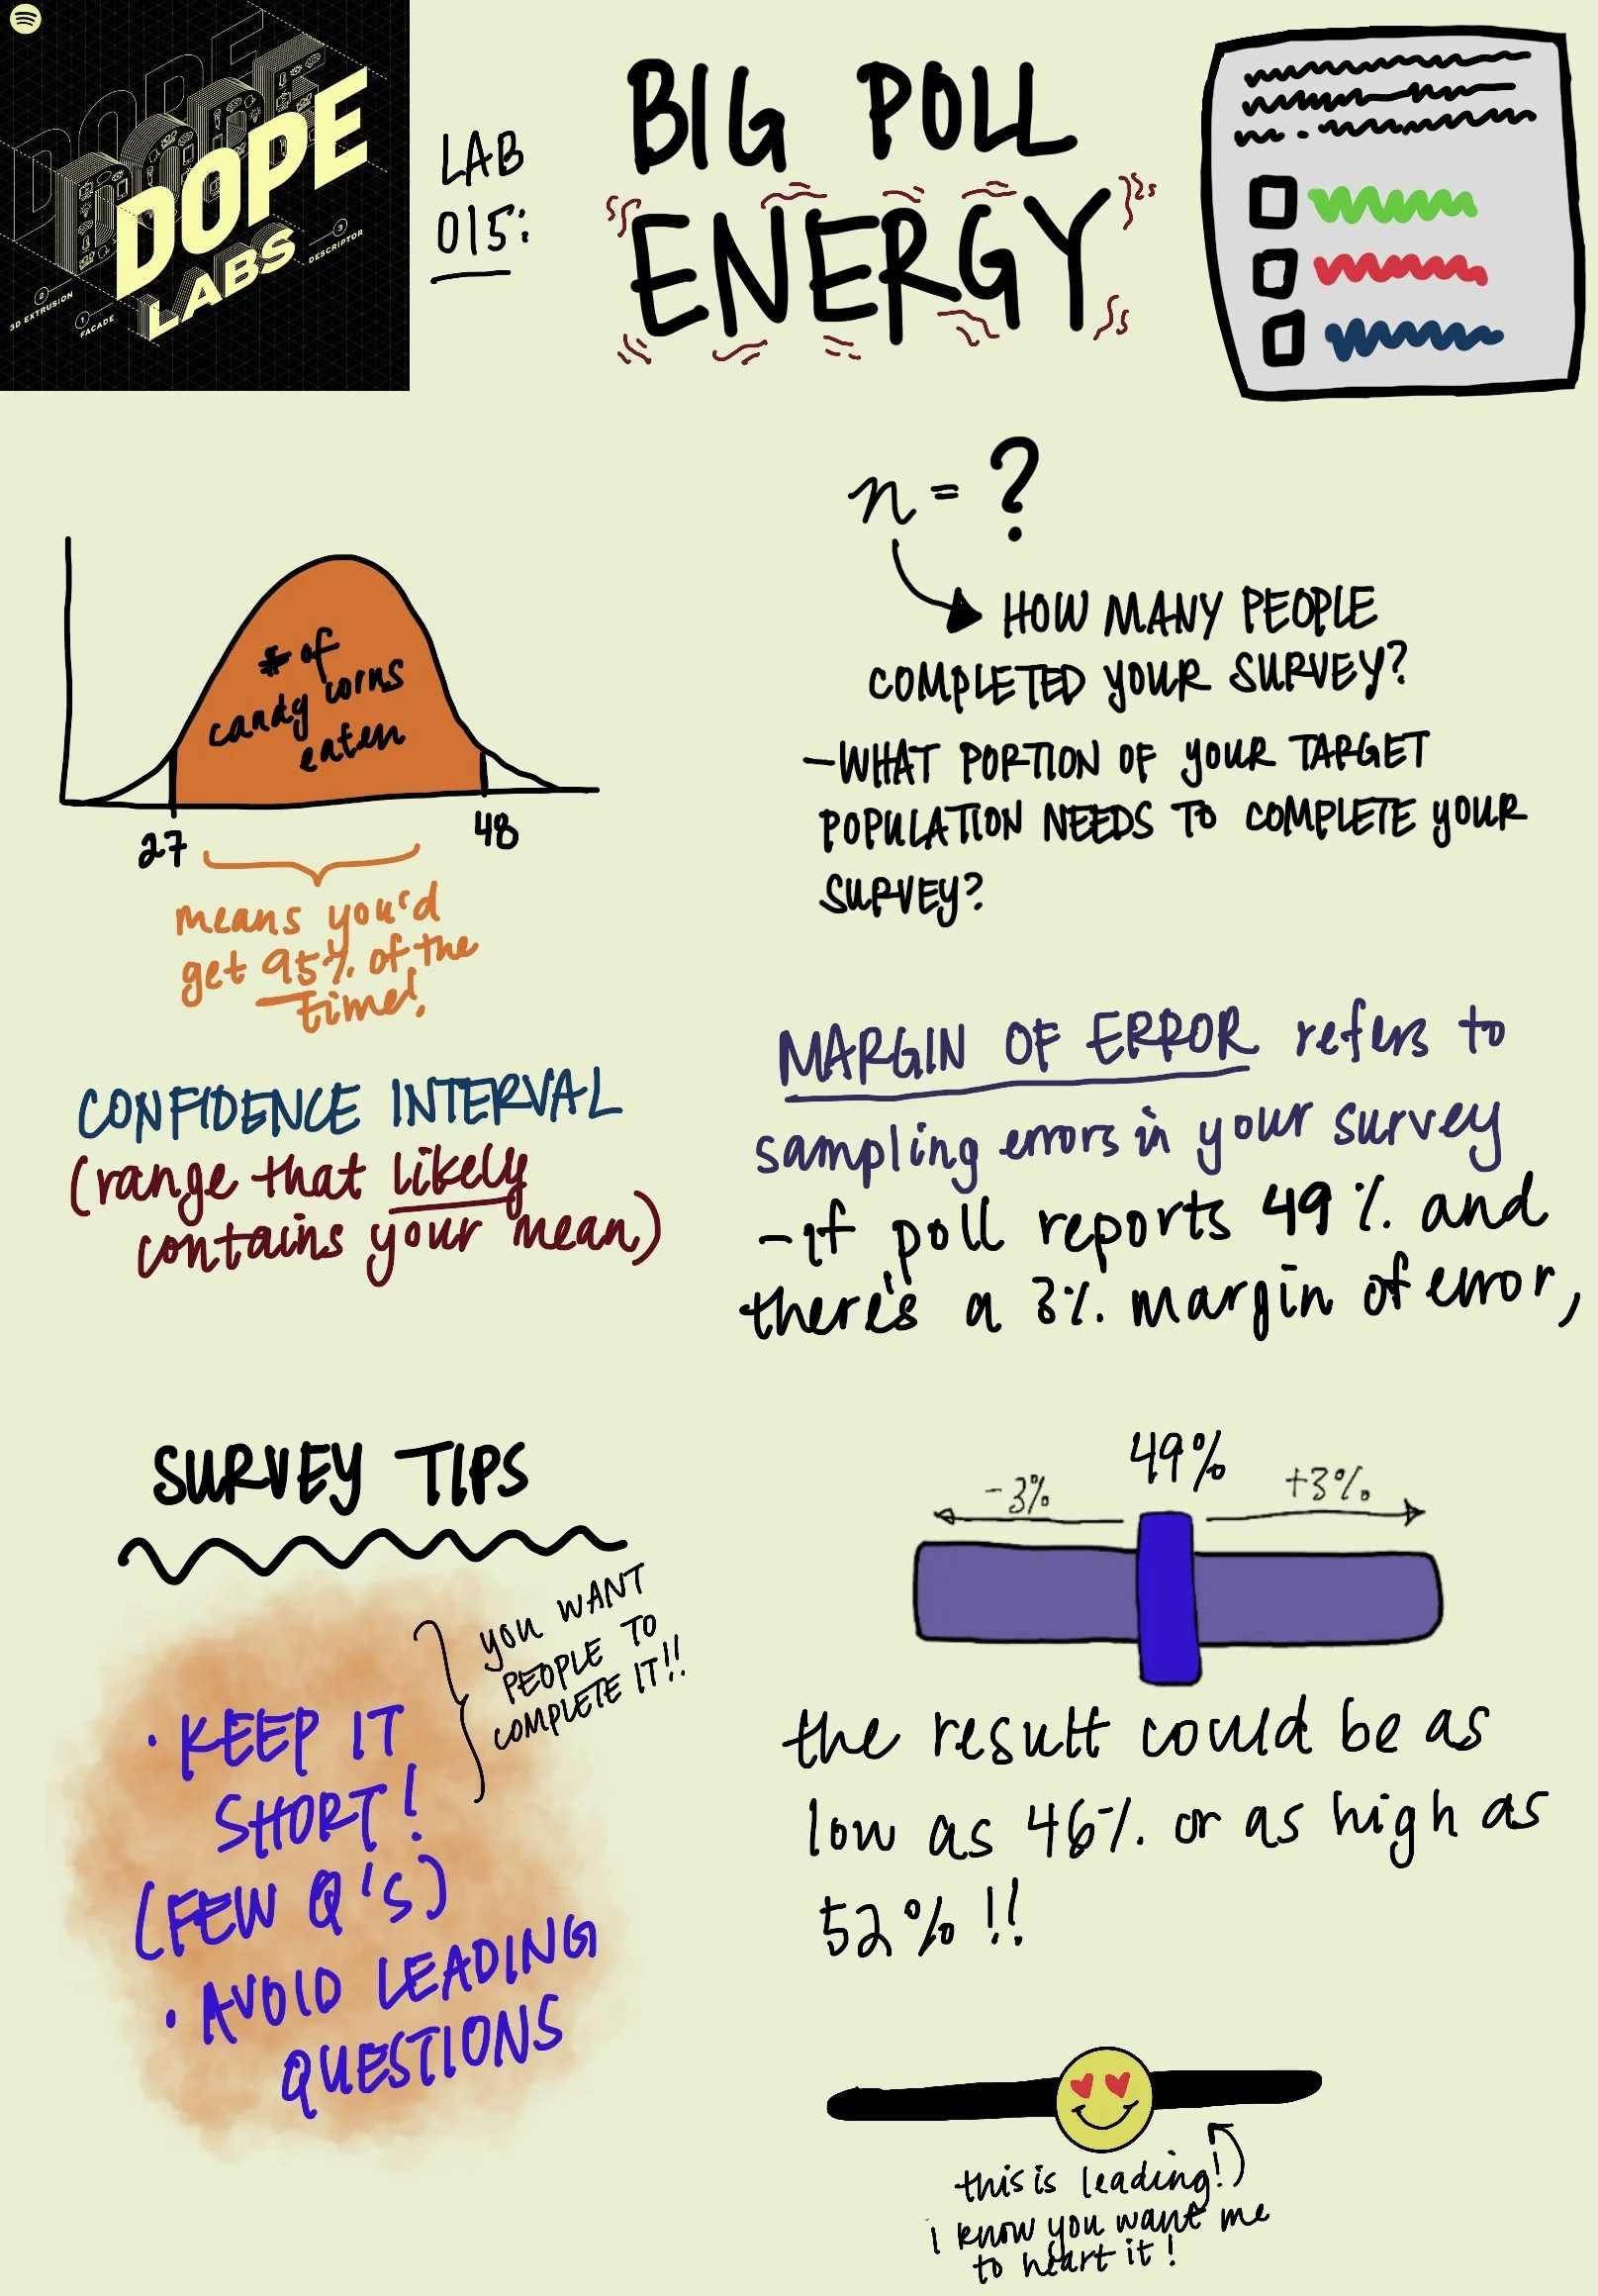 DOPE
LABS
3D EXTRUSION
2
1
FACADE
3
DESCRIPTOR
LAB
015:
BIG POLL
ENERGY
n = ?
HOW MANY PEOPLE
COMPLETED YOUR SURVEY?
-WHAT PORTION OF YOUR TARGET
POPULATION NEEDS TO COMPLETE YOUR
SURVEY?
# of
candy corns
eaten
27
48
means you'd
get 95% of the
time!
CONFIDENCE INTERVAL
(range that likely
contains your mean)
MARGIN OF ERROR refers to
sampling errors in your survey
-if poll reports 49% and
there's a 3% margin of error,
49%
-3%
+3%
the result could be as
low as 46% or as high as
52%!!
SURVEY TIPS
• KEEP IT
SHORT!
(FEW Q'S)
YOU WANT
PEOPLE TO
COMPLETE IT!!
• AVOID LEADING
QUESTIONS
this is leading!
i know you want me
to heart it!